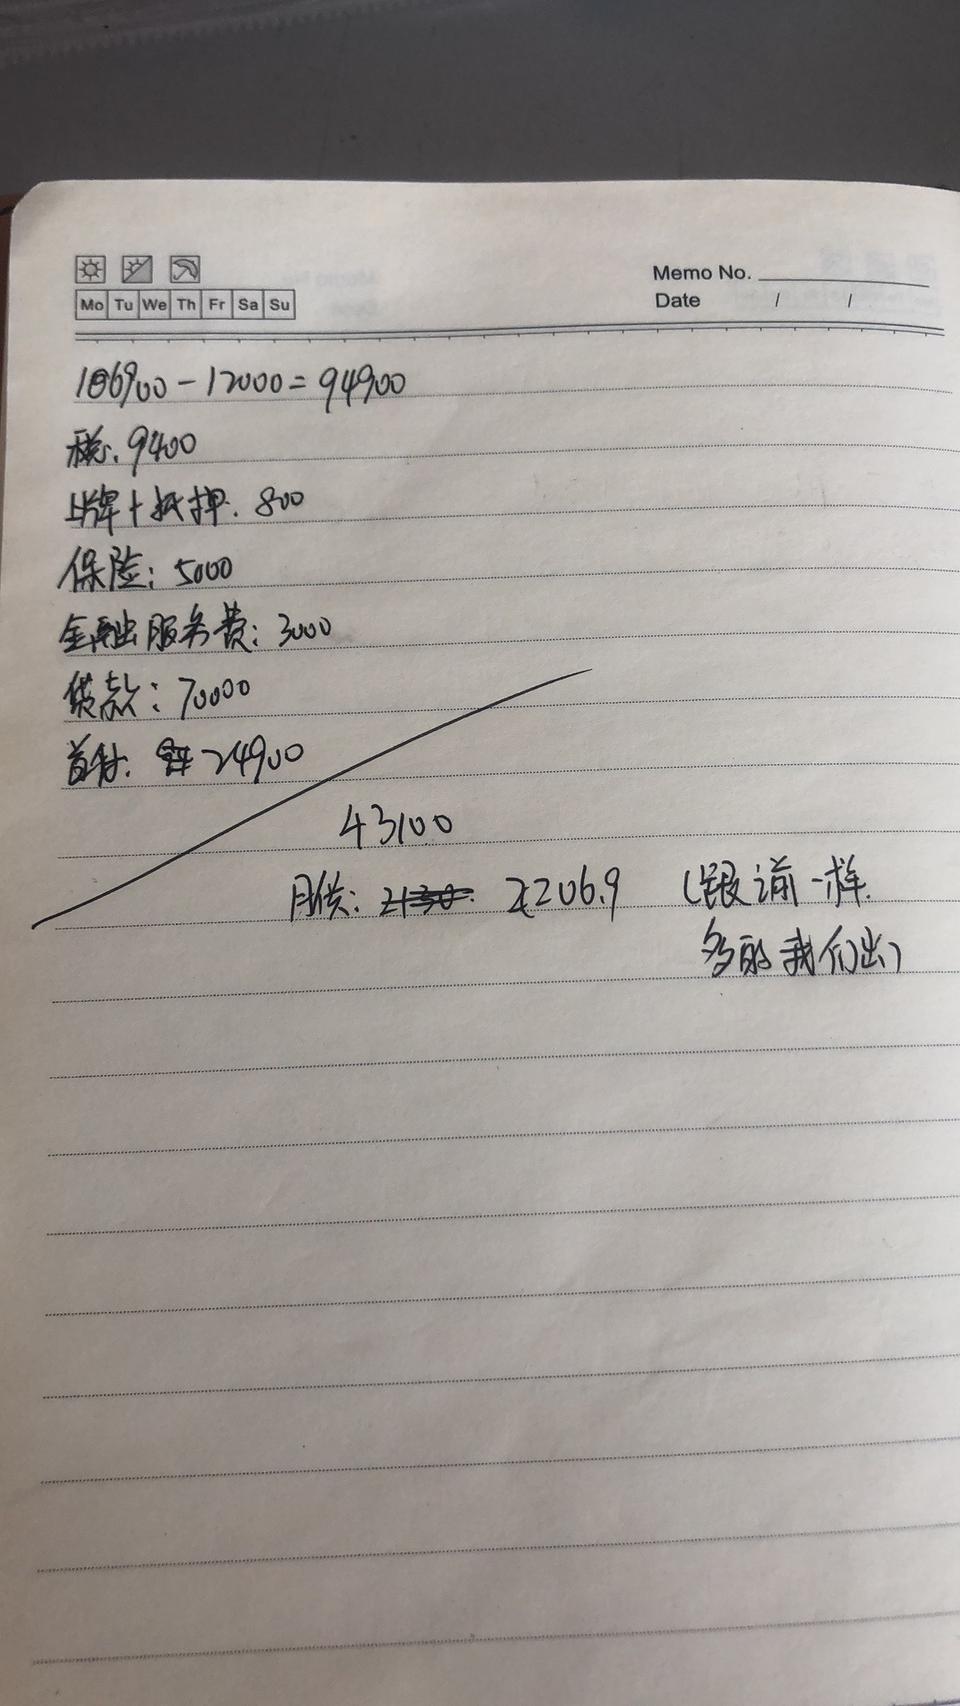 Memo No.
Mo Tu We Th Fr Sa Su
Date / /
106900-12000=94900
税:9400
上牌+抵押:800
保险:5000
金融服务费:3000
贷款:70000
首付:24900
43100
月供:2130 2206.9 (跟之前一样.
多的我们出)